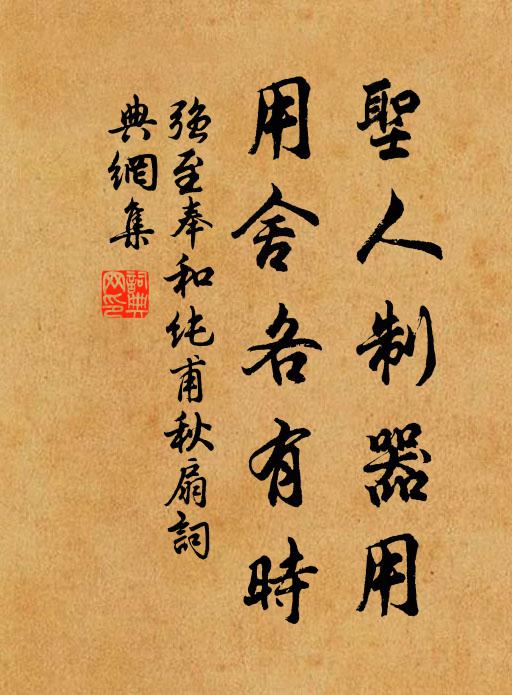 聖人制器用
用舍各有時
強至奉和純甫秋扇詞
典網集
詞典
网印